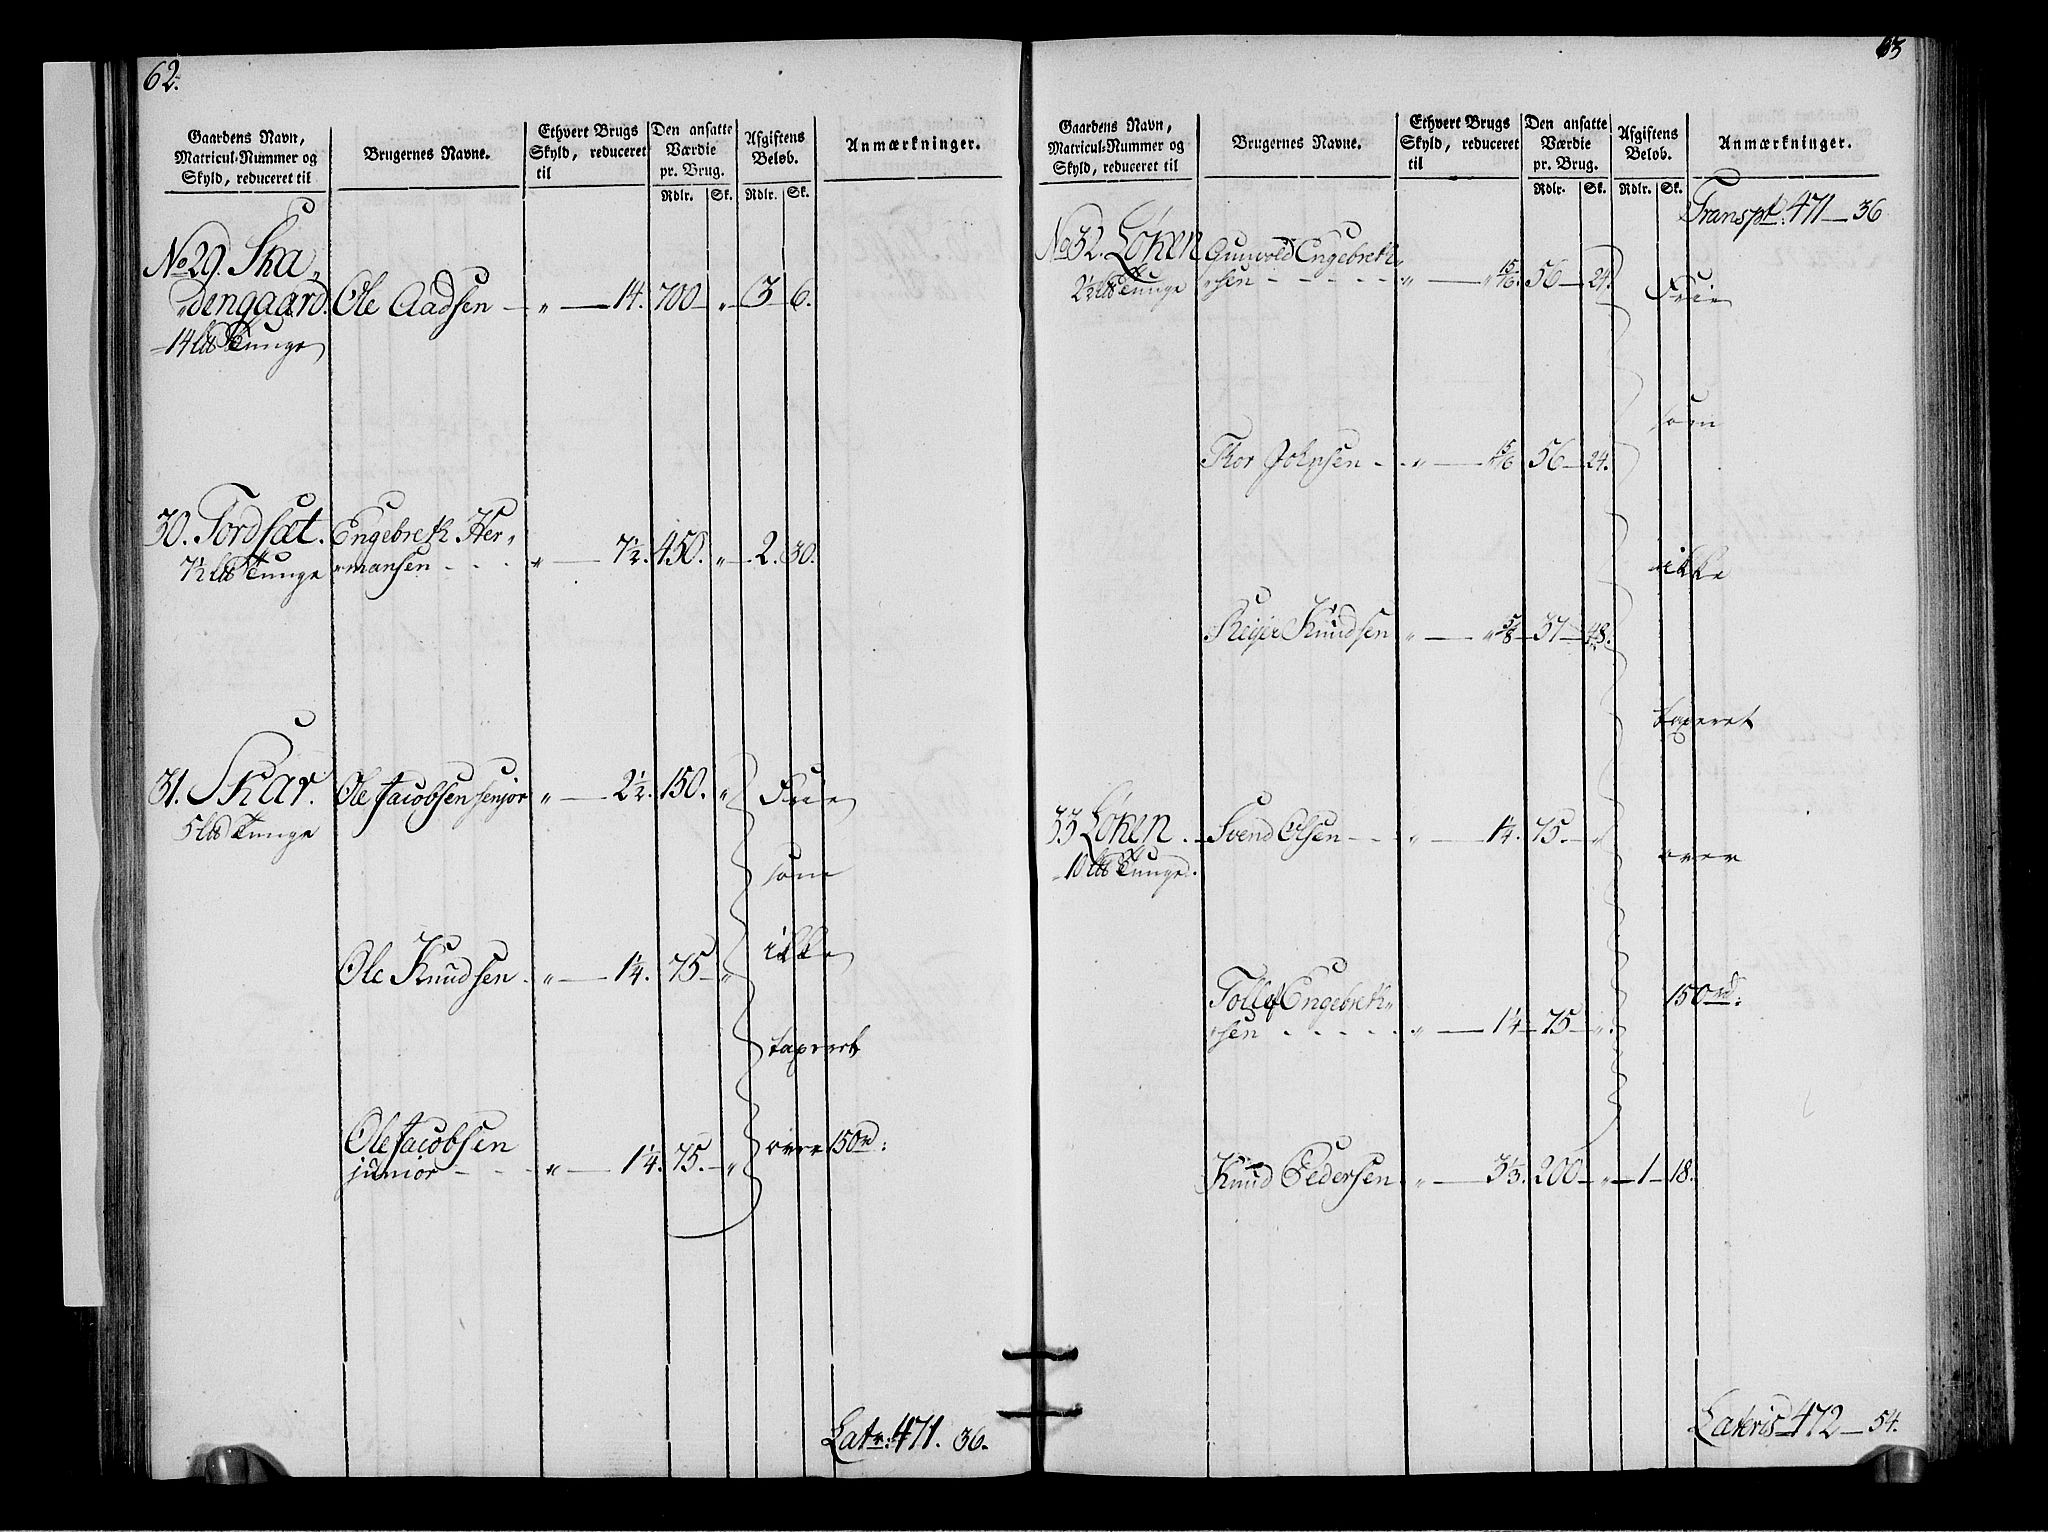 62.
Gaardens Navn, Matricul-Nummer og Skyld, reduceret til
Brugernes Navne.
Ethvert Brugs Skyld, reduceret til
Den ansatte Værdie pr. Brug.
Rdlr. Sk.
Afgiftens Beløb.
Rdlr. Sk.
Anmærkninger.
No 29. Ska„
„dengaard. Ole Aadsen — „ — 14. 700 — „ — 3 — 6.
14 Tunge
30. Tordsæt. Engebreth Her„
7½ Tunge „mansen - - - „ — 7½. 450. „ — 2. 30.
31. Skar. Ole Jacobsen senjor „ — 2½. 150. „ Frie
5 Tunge
som
Ole Knudsen - „ — 1¼. 75 — „ ikke
taxeret
Ole Jacobsen
junior - - - „ — 1¼. 75. — „ over 150rd:
Latr: 471. 36.
63
Gaardens Navn, Matricul-Nummer og Skyld, reduceret til
Brugernes Navne.
Ethvert Brugs Skyld, reduceret til
Den ansatte Værdie pr. Brug.
Rdlr. Sk.
Afgiftens Beløb.
Rdlr. Sk.
Anmærkninger.
Transpt: 471 — 36
No 32. Løken Gunvold Engebreth„
2½ Tunge „sen - - - - - „ — „ 15/16. 56 — 24. Frie
som
Thor Johnsen - - „ — 15/16 56 — 24.
ikke
Reyer Knudsen „ — „ 5/8 — 37 — 48.
taxeret
33 Løken. Svend Olsen — - - „ — 1¼. 75. — „
10 Tunge.
over
Tollef Engebreth„ 150rd:
„sen - - - - - „ — 1¼ — 75 — „.
Knud Pedersen „ — 3⅓. 200 — „ — 1 — 18.
Lateris 472 — 54.